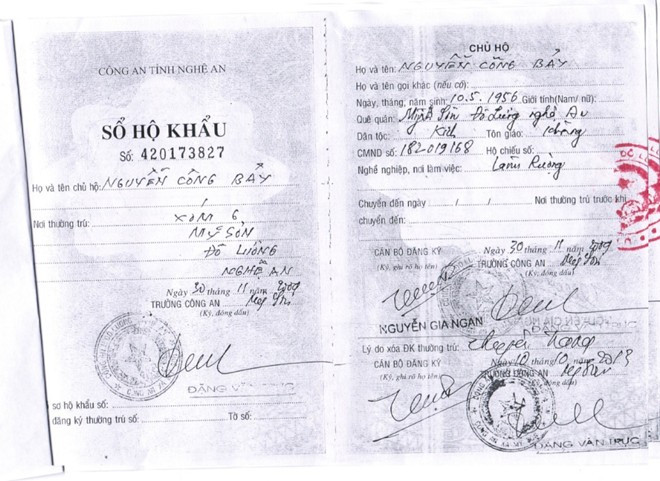 CÔNG AN TỈNH NGHỆ AN
SỔ HỘ KHẨU
Số: 420173827
Họ và tên chủ hộ: NGUYỄN CÔNG BẢY
Nơi thường trú: XÓM 6
MỸ SƠN
ĐÔ LƯƠNG
NGHỆ AN
Ngày 30 tháng 11 năm 2009
TRƯỞNG CÔNG AN Mỹ Sơn
(Ký, đóng dấu)
ĐẶNG VĂN TRỰC
sơ hộ khẩu số:
đăng ký thường trú số: Tờ số:
CHỦ HỘ
Họ và tên: NGUYỄN CÔNG BẢY
Họ và tên gọi khác (nếu có):
Ngày, tháng, năm sinh: 10.5.1956 Giới tính(Nam/ nữ):
Quê quán: Mỹ Sơn Đô Lương Nghệ An
Dân tộc: Kinh Tôn giáo: Không
CMND số: 182019168 Hộ chiếu số:
Nghề nghiệp, nơi làm việc: Làm Ruộng
Chuyển đến ngày / / Nơi thường trú trước khi
chuyển đến:
CÁN BỘ ĐĂNG KÝ
(Ký, ghi rõ họ tên)
Ngày 30 tháng 11 năm 2009
TRƯỞNG CÔNG AN Mỹ Sơn
(Ký, đóng dấu)
NGUYỄN GIA NGẠN
Lý do xóa ĐK thường trú:
CÁN BỘ ĐĂNG KÝ
(Ký, ghi rõ họ tên)
Ngày 10 tháng 10 năm 2013
TRƯỞNG CÔNG AN
ĐẶNG VĂN TRỰC